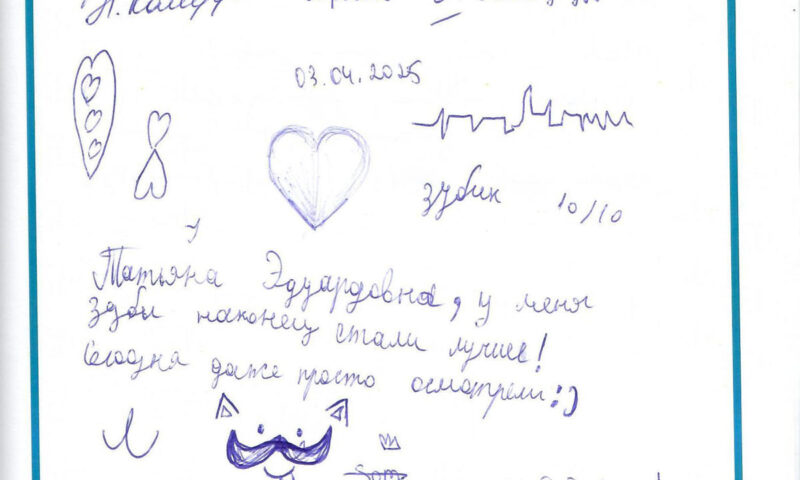 03.04.2025
зубик 10/10
Татьяна Эдуардовна, у меня
зубы наконец стали лучше!
Сегодня даже просто осмотрели:)